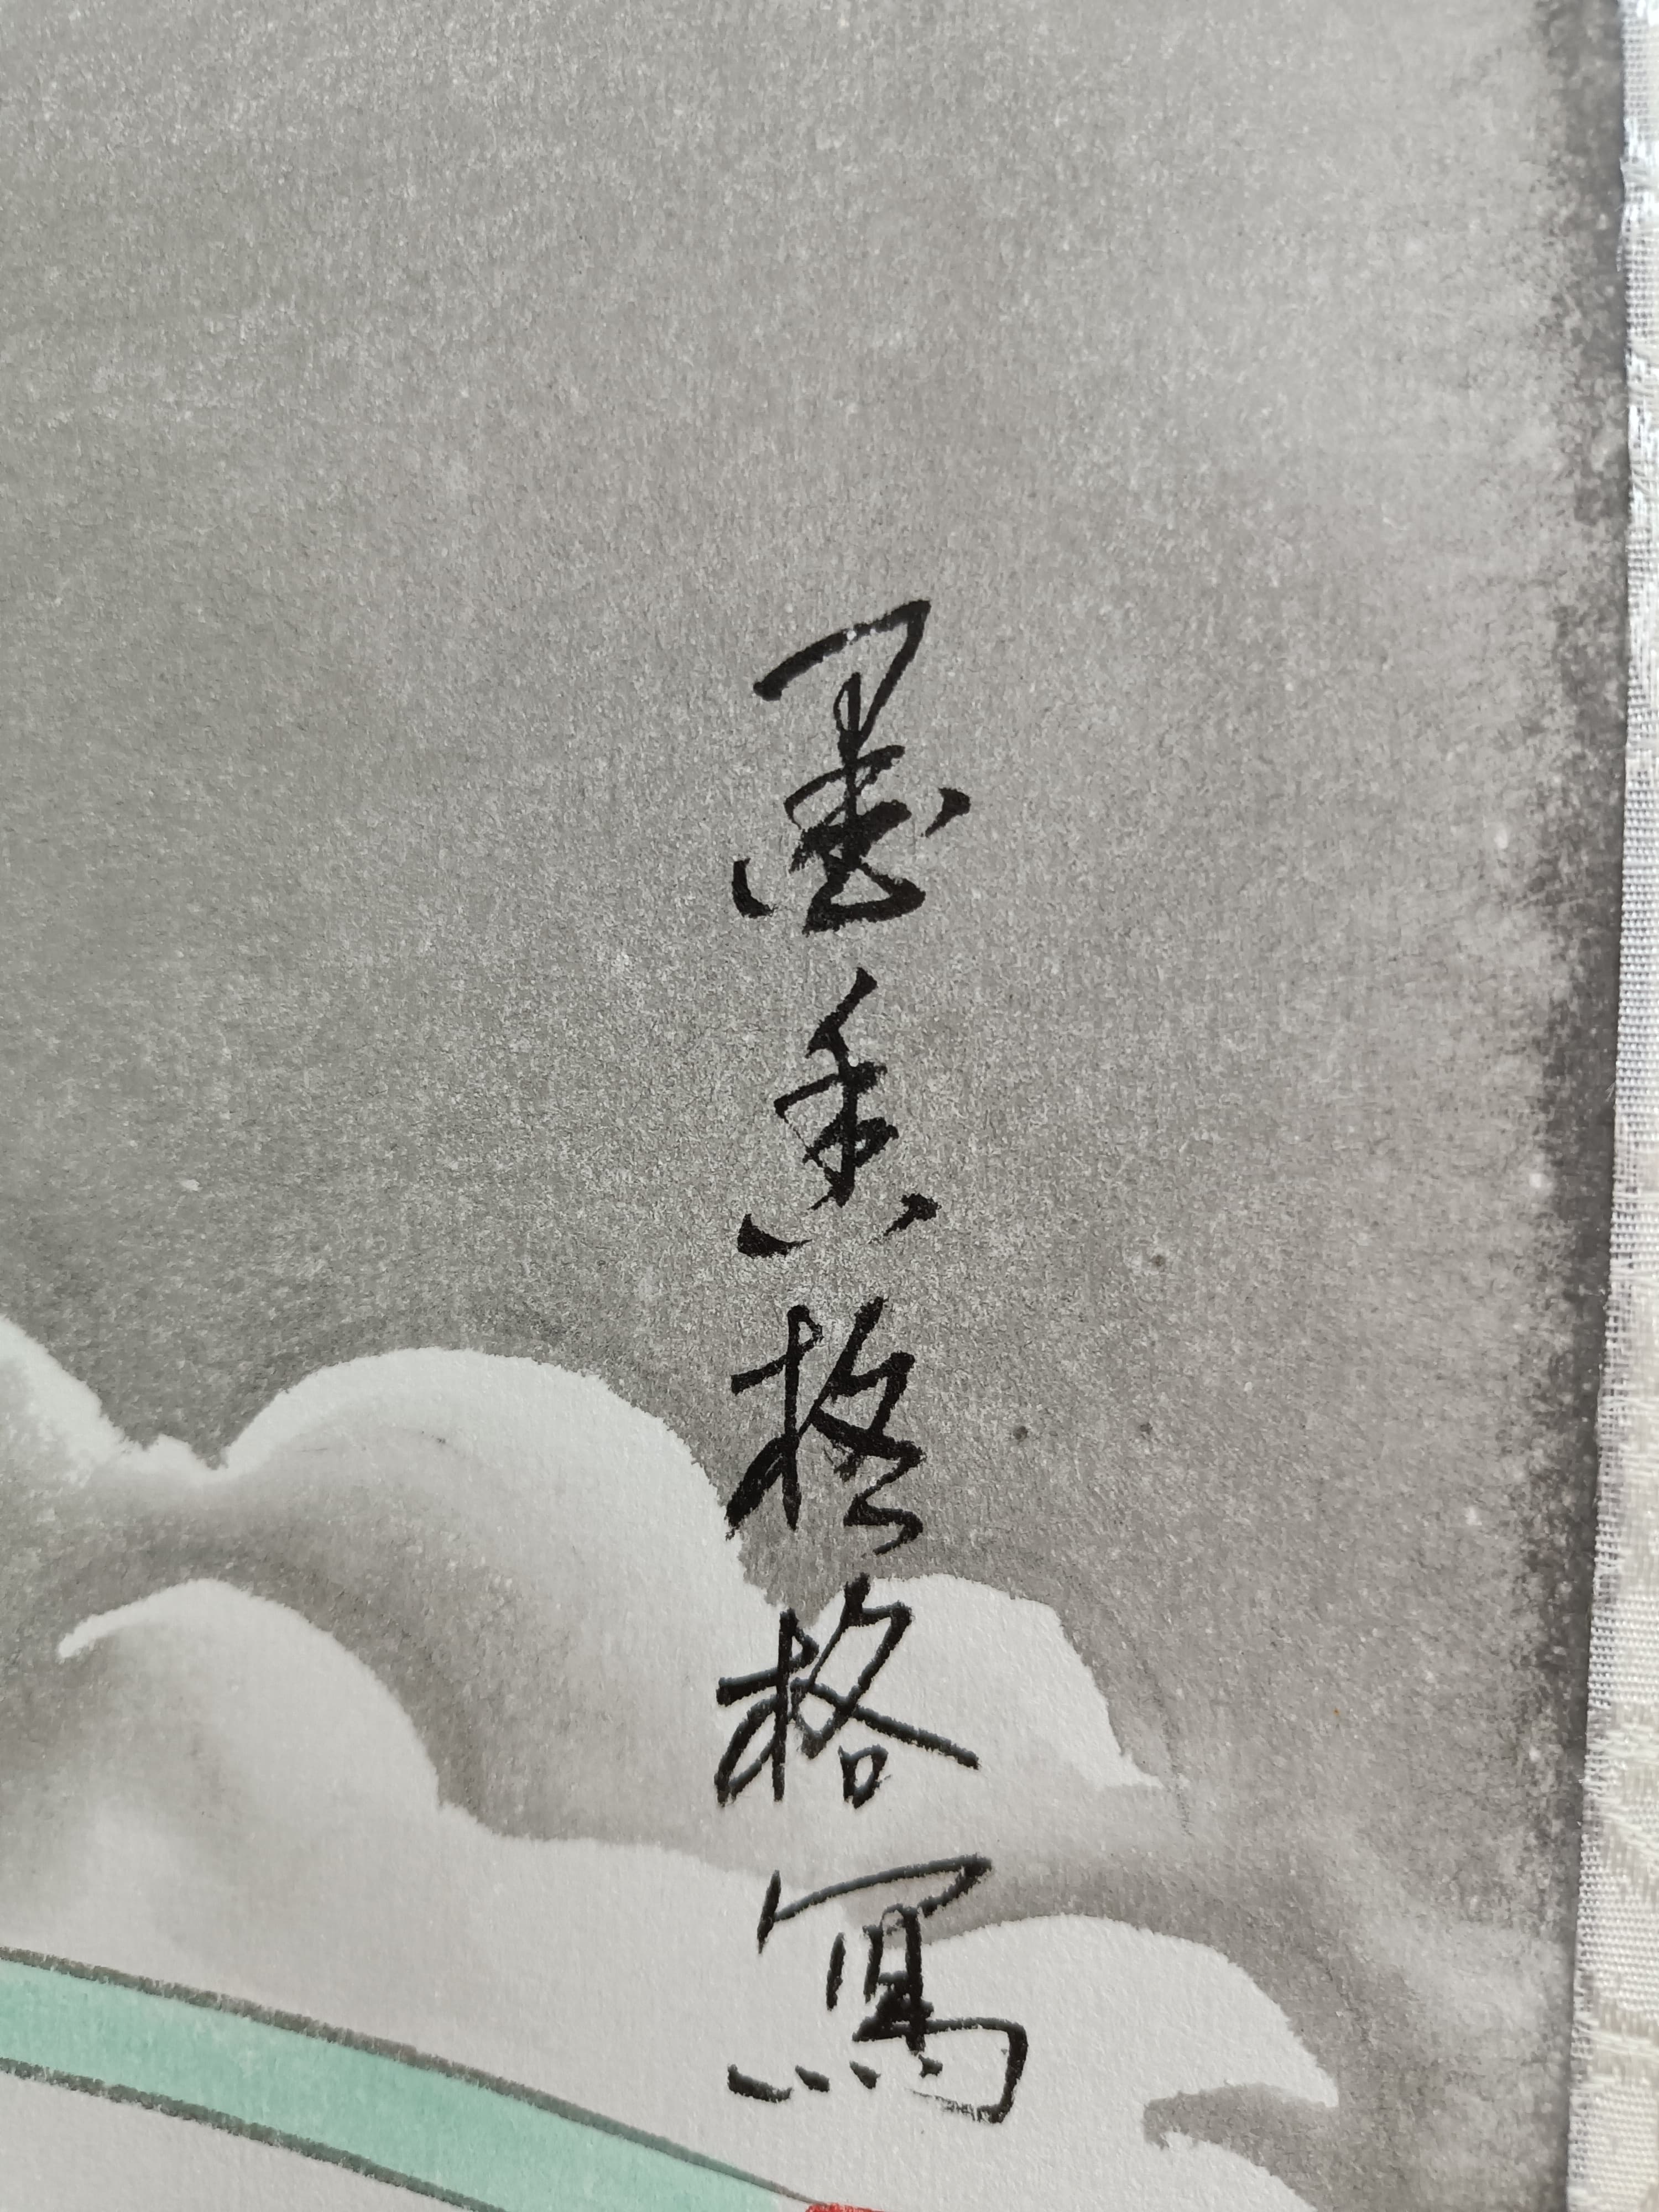 墨香格格寫